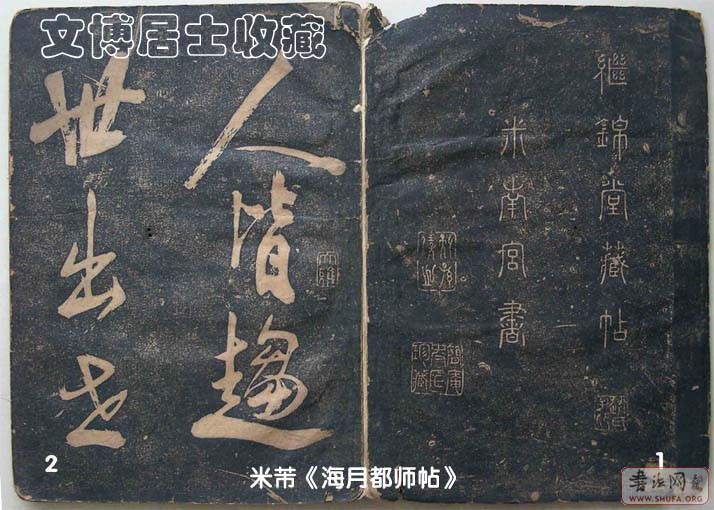 文博居士收藏
繼錦堂藏帖
米南宮書
人皆趨
世出世
2
米芾《海月都师帖》
1
书法网
WWW.SHUFA.ORG